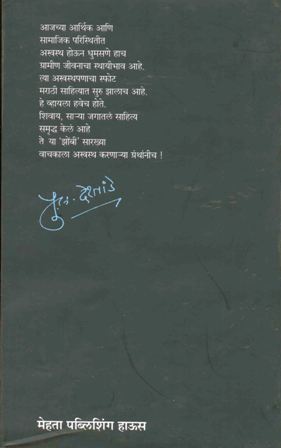 आजच्या आर्थिक आणि
सामाजिक परिस्थितीत
अस्वस्थ होऊन धुमसणे हाच
ग्रामीण जीवनाचा स्थायीभाव आहे.
त्या अस्वस्थपणाचा स्फोट
मराठी साहित्यात सुरु झालाच आहे.
हे व्हायला हवेच होते.
शिवाय, साऱ्या जगातलं साहित्य
समृद्ध केलं आहे
ते या 'झोंबी' सारख्या
वाचकाला अस्वस्थ करणाऱ्या ग्रंथांनीच !
पु.ल. देशपांडे
मेहता पब्लिशिंग हाऊस